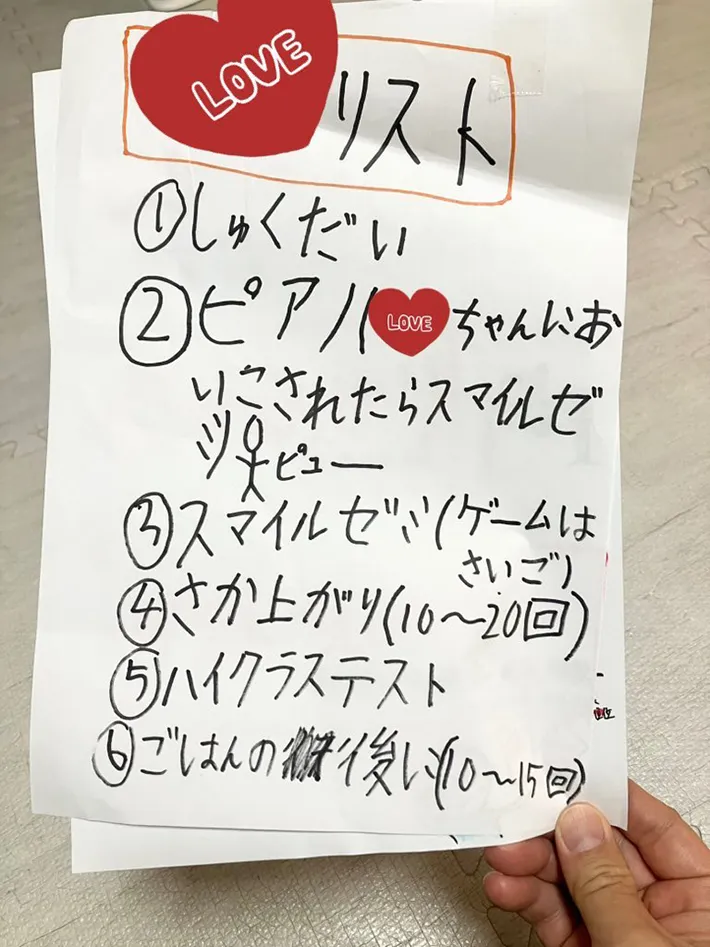 LOVE リスト
①しゅくだい
②ピアノ(LOVEちゃんにお
いこされたらスマイルゼ
ミ ピュー
③スマイルゼミ(ゲームは
さいご)
④さか上がり(10〜20回)
⑤ハイクラステスト
⑥ごはんの 後い(10〜15回)